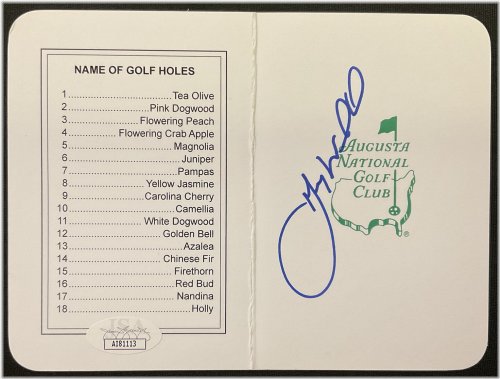 NAME OF GOLF HOLES
1 Tea Olive
2 Pink Dogwood
3 Flowering Peach
4 Flowering Crab Apple
5 Magnolia
6 Juniper
7 Pampas
8 Yellow Jasmine
9 Carolina Cherry
10 Camellia
11 White Dogwood
12 Golden Bell
13 Azalea
14 Chinese Fir
15 Firethorn
16 Red Bud
17 Nandina
18 Holly
JSA
AI81113
AUGUSTA
NATIONAL
GOLF
CLUB
®